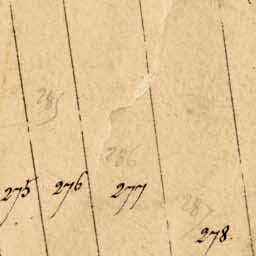 285
286
287
275 276 277
278.